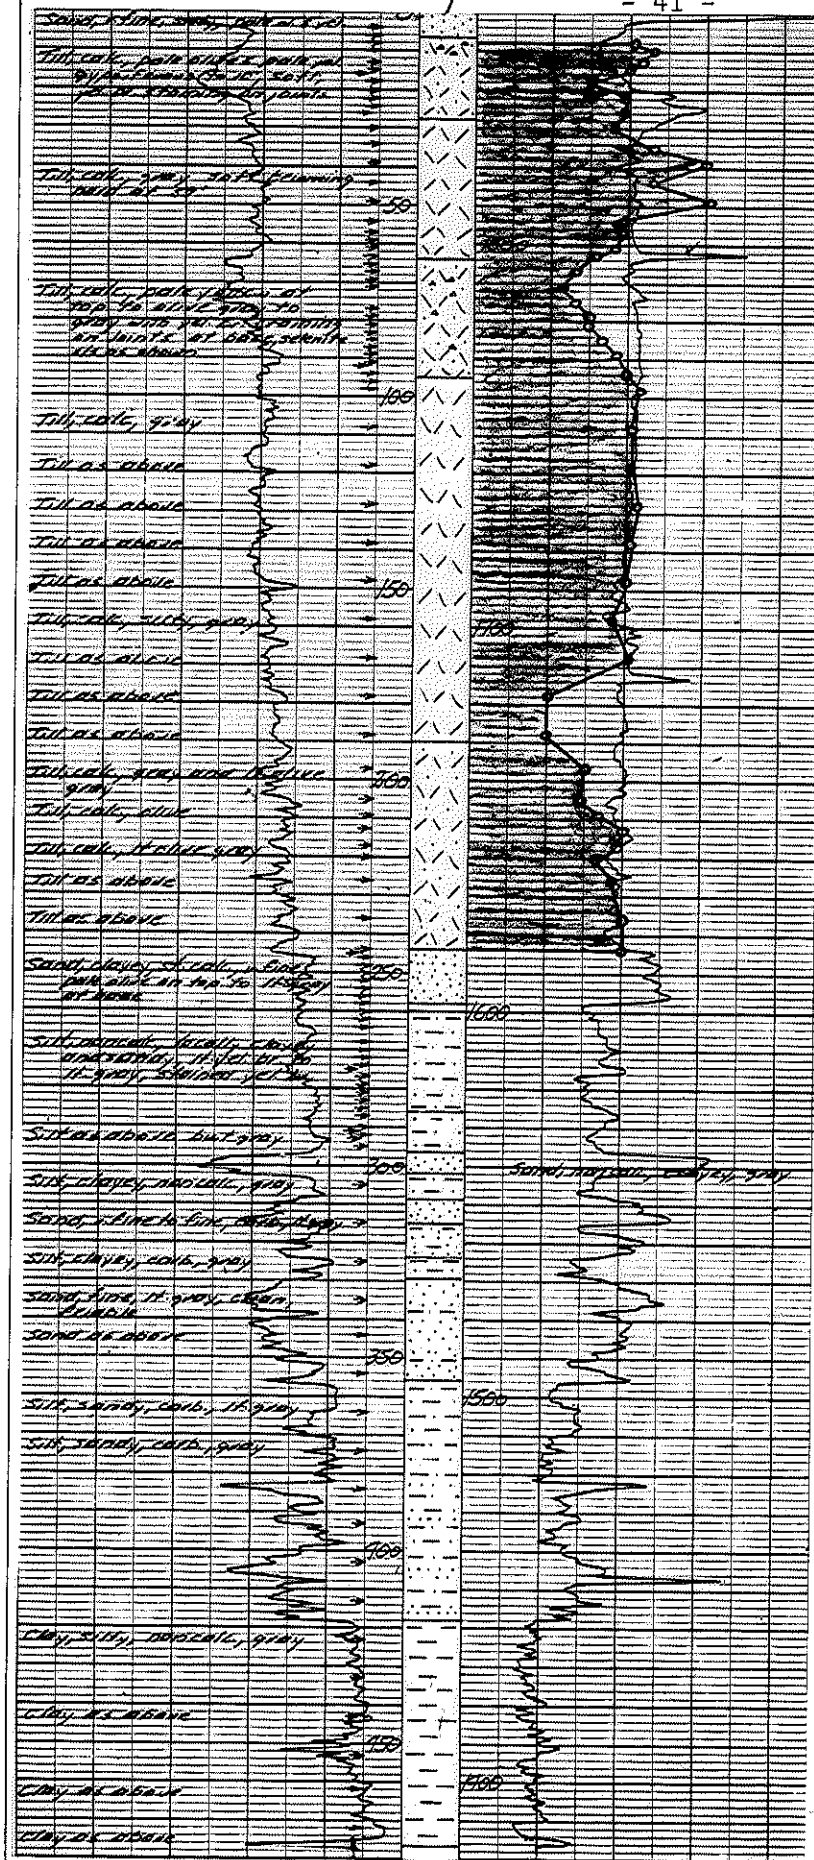 - 41 -
Sand, v fine, silty, pale ol & yel
Till, calc, pale
soft,
staining on joints
Till, calc, gray, soft becoming
hard at 39'
50
Till, calc, pale yel at
top to olive gray to
gray with yel staining
on joints at base, selenite
xls as shown
100
Till, calc, gray
Till as above
Till as above
Till as above
Till as above
150
Till, calc, silty, gray
1700
Till as above
Till as above
Till as above
Till, calc, gray and lt olive
gray
200
Till, calc, olive
Till, calc, lt olive gray
Till as above
Till as above
Sand, clayey, sl calc, v fine,
pale olive on top to lt gray
at base
250
1600
Silt, noncalc, locally clayey
and sandy, lt yel br to
lt gray, stained yel
Silt as above but gray
300
Sand, noncalc, clayey, gray
Silt, clayey, noncalc, gray
Sand, v fine to fine, carb, lt gray
Silt, clayey, carb, gray
Sand, fine, lt gray, clean,
friable
Sand as above
350
1500
Silt, sandy, carb, lt gray
Silt, sandy, carb, gray
400
Clay, silty, noncalc, gray
Clay as above
450
1400
Clay as above
Clay as above